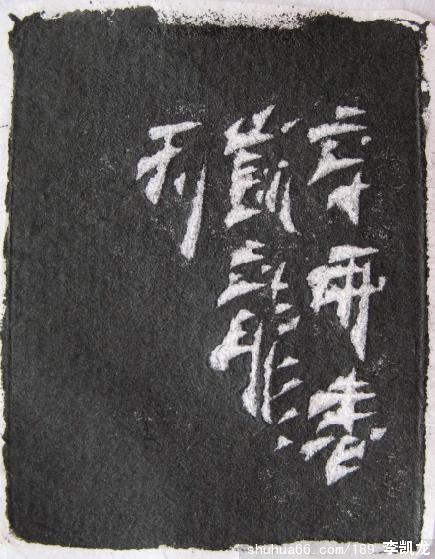 辛卯春
凱龍
刊
shuhua66.com/189 李凯龙